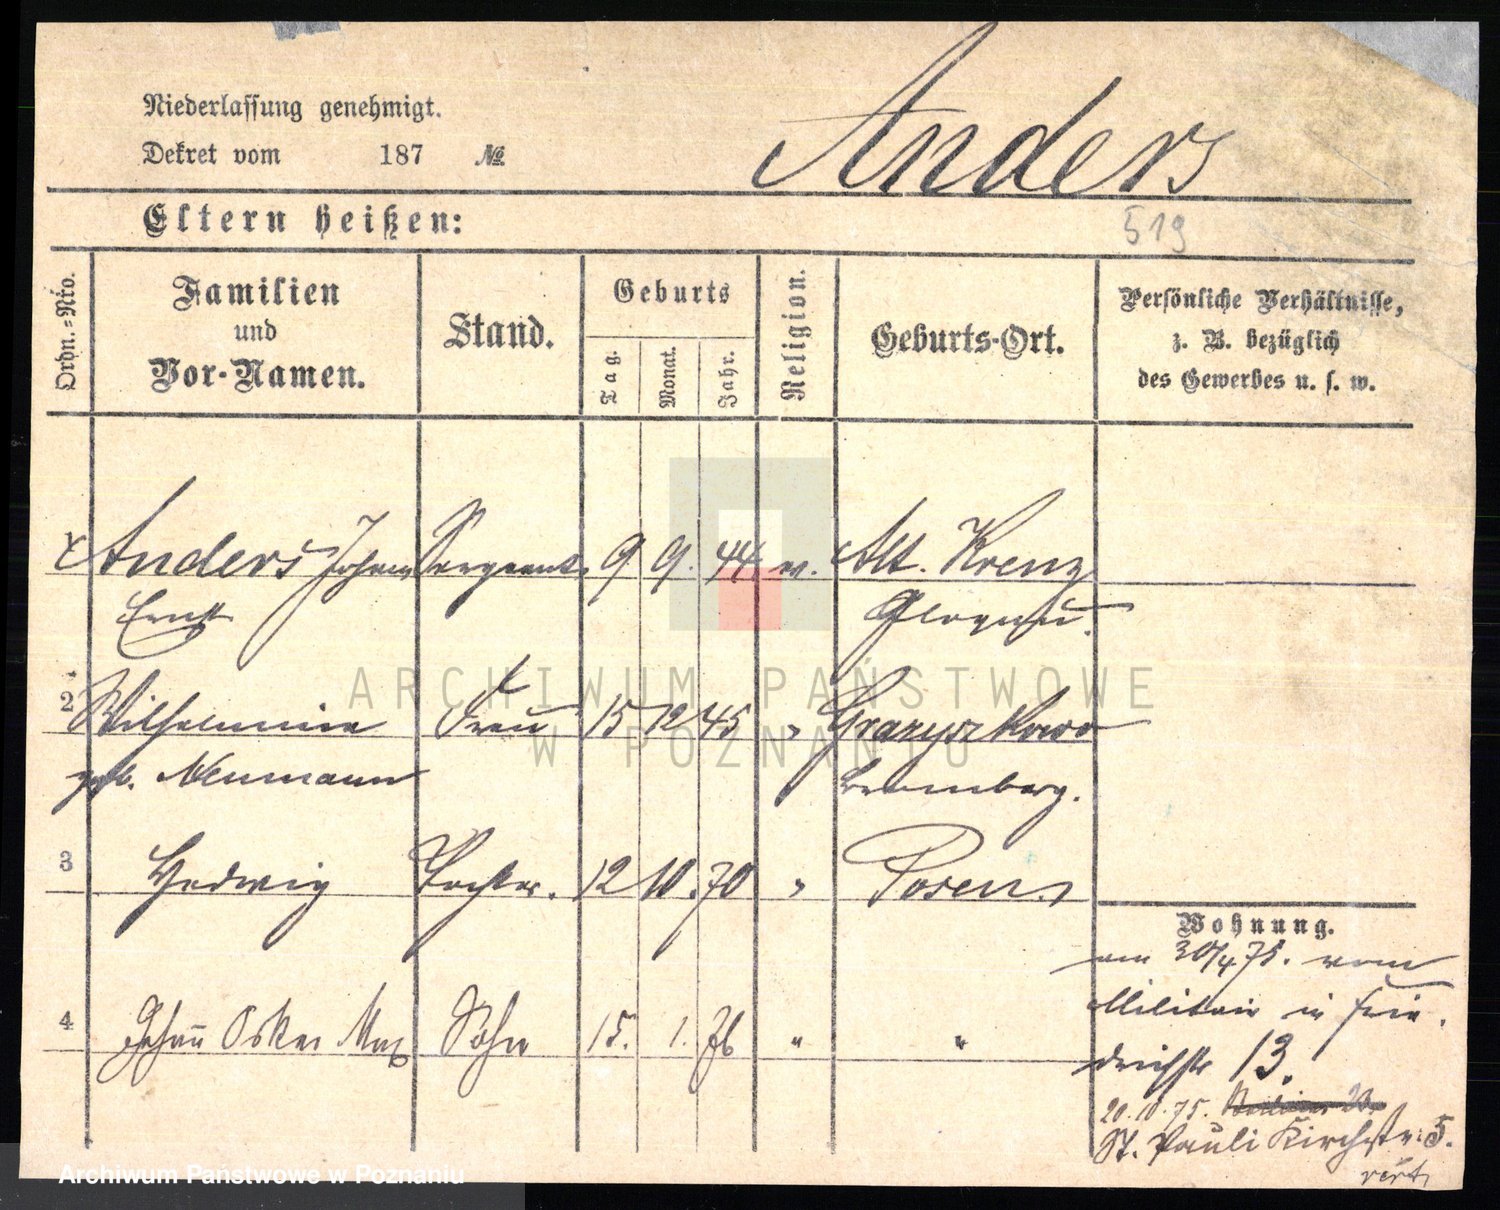 Niederlassung genehmigt.
Dekret vom 187 №
Anders
Eltern heißen:
519
Ordn.-Nro.
Familien und Vor-Namen.
Stand.
Geburts
Tag.
Monat.
Jahr.
Religion.
Geburts-Ort.
Persönliche Verhältnisse,
z. B. bezüglich
des Gewerbes u. s. w.
Anders Johann Sergeant 9 9. 44 ev. Alt. Krenz
Ernst Glogau.
2 Wilhelmine Frau 15 12 45 " Grazyszkowo
geb. Neumann Bromberg.
3 Hedwig Tochter. 12 10. 70 " Posen
4 Johann Oskar Max Sohn 15. 1. 76 " "
Wohnung.
am 30/4 75. vom
Militair in Frie
drichstr 13.
20.10.75.
St. Pauli Kirchstr: 5.
vert
ARCHIWUM PAŃSTWOWE
W POZNANIU
Archiwum Państwowe w Poznaniu